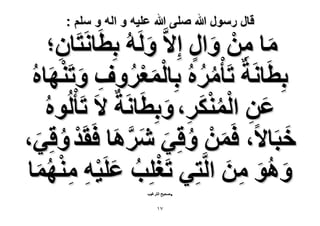 قال رسول الله صلى الله عليه و اله و سلم :
مَا مِنْ وَالٍ إِلاَّ وَلَهُ بِطَانَتَانِ؛
بِطَانَةٌ تَأْمُرُهُ بِالْمَعْرُوفِ وَتَنْهَاهُ
عَنِ الْمُنْكَرِ، وَبِطَانَةٌ لاَ تَأْلُوهُ
خَبَالاً، فَمَنْ وُقِيَ شَرَّهَا فَقَدْ وُقِيَ،
وَهُوَ مِنَ الَّتِي تَغْلِبُ عَلَيْهِ مِنْهُمَا
١٧